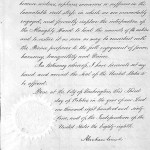 widows, orphans, mourners or sufferers in the
lamentable civil strife in which we are unavoidably
engaged, and fervently implore the interposition of
the Almighty Hand to heal the wounds of the nation
and to restore it as soon as may be consistent with
the Divine purposes to the full enjoyment of peace,
harmony, tranquillity and Union.
In testimony whereof, I have hereunto set my
hand and caused the Seal of the United States to
be affixed.
Done at the City of Washington, this Third
day of October, in the year of our Lord
one thousand eight hundred and sixty-
three, and of the Independence of the
United States the Eighty-eighth.
Abraham Lincoln